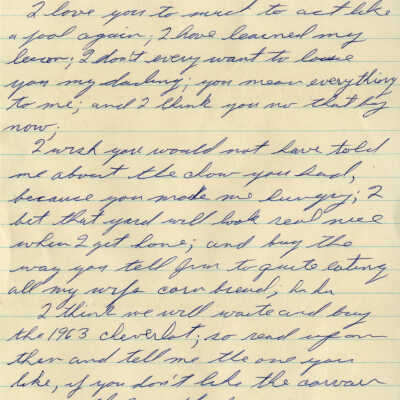 I love you to much to act like
a fool again; I have learned my
lesson; I don't every want to loose
you my darling; you mean everything
to me; and I think you no that by
now;
I wish you would not have told
me about the chow you had,
because you made me hungry; I
bet that yard will look real nice
when I get home; and buy the
way you tell Jim to quite eating
all my wifs corn bread; ha ha
I think we will waite and buy
the 1963 cheverlot; so read up on
them and tell me the one you
like, if you don't like the corvair